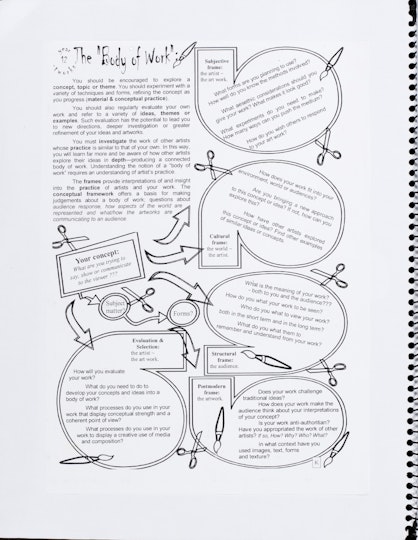 The "Body of Work"
You should be encouraged to explore a
concept, topic or theme. You should experiment with a
variety of techniques and forms, refining the concept as
you progress (material & conceptual practice).
You should also regularly evaluate your own
work and refer to a variety of ideas, themes or
examples. Such evaluation has the potential to lead you
to new directions, deeper investigation or greater
refinement of your ideas and artworks
You must investigate the work of other artists
whose practice is similar to that of your own. In this way,
you will learn far more and be aware of how other artists
explore their ideas in depth—producing a connected
body of work. Understanding the notion of a "body
of work" requires an understanding of artist's practice.
The frames provide interpretations of and insight
into the practice of artists and your work. The
conceptual framework offers a basis for making
judgements about a body of work, questions about
audience response, how aspects of the world are
represented and what/how the artworks are
communicating to an audience.
Subjective
frame:
the artist –
the art work.
What forms are you planning to use?
How well do you know the methods involved?
What aesthetic considerations should you
give your work? What makes it look good?
What experiments do you need to make?
How many ways can you push the medium?
How do you want others to respond
to your art work?
How does your work fit into your
environment, world or audiences?
Are you bringing a new approach
to this concept or idea? If not, how can you
explore this?
How have other artists explored
this concept or idea? Find other examples
of similar ideas or concepts.
Cultural
frame:
the world –
the artist.
Your concept:
What are you trying to
say, show or communicate
to the viewer ???
Subject
matter?
Forms?
What is the meaning of your work?
- both to you and the audience?
How do you what your work to be seen?
Who do you what to view your work?
both in the short term and in the long term?
What do you what them to
remember and understand from your work?
Structural
frame:
the audience.
Evaluation &
Selection:
the artist –
the art work.
How will you evaluate
your work?
What do you need to do to
develop your concepts and ideas into a
body of work?
What processes do you use in your
work that display conceptual strength and a
coherent point of view?
What processes do you use in your
work to display a creative use of media
and composition?
Postmodern
frame:
the artwork.
Does your work challenge
traditional ideas?
How does your work make the
audience think about your interpretations
of your concept?
Is your work anti-authoritian?
Have you appropriated the work of other
artists? If so, How? Why? Who? What?
in what context have you
used images, text, forms
and texture?